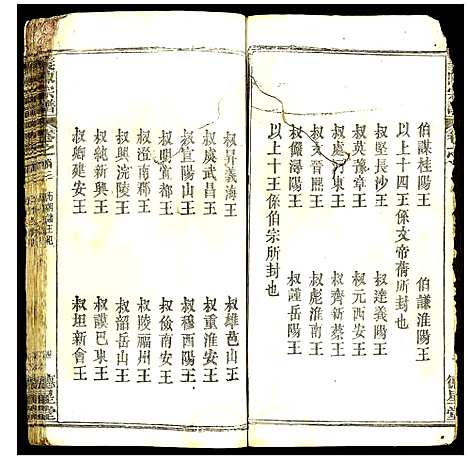 伯謀桂陽王 伯謙淮陽王
以上十四王係文帝蒨所封也
叔堅長沙王 叔達義陽王
叔英豫章王 叔元西安王
叔處河東王 叔齊新蔡王
叔文晉熙王 叔彪淮南王
叔儼潯陽王 叔謹岳陽王
以上十王係伯宗所封也
叔昇義海王 叔雄邑山王
叔虞武昌王 叔重淮安王
叔宣陽山王 叔穆酉陽王
叔明宜都王 叔儉南安王
叔澄南郡王 叔陵福州王
叔興浣陵王 叔韶岳山王
叔純新興王 叔謨巴東王
叔卿建安王 叔坦新會王
義陳宗譜
德星堂